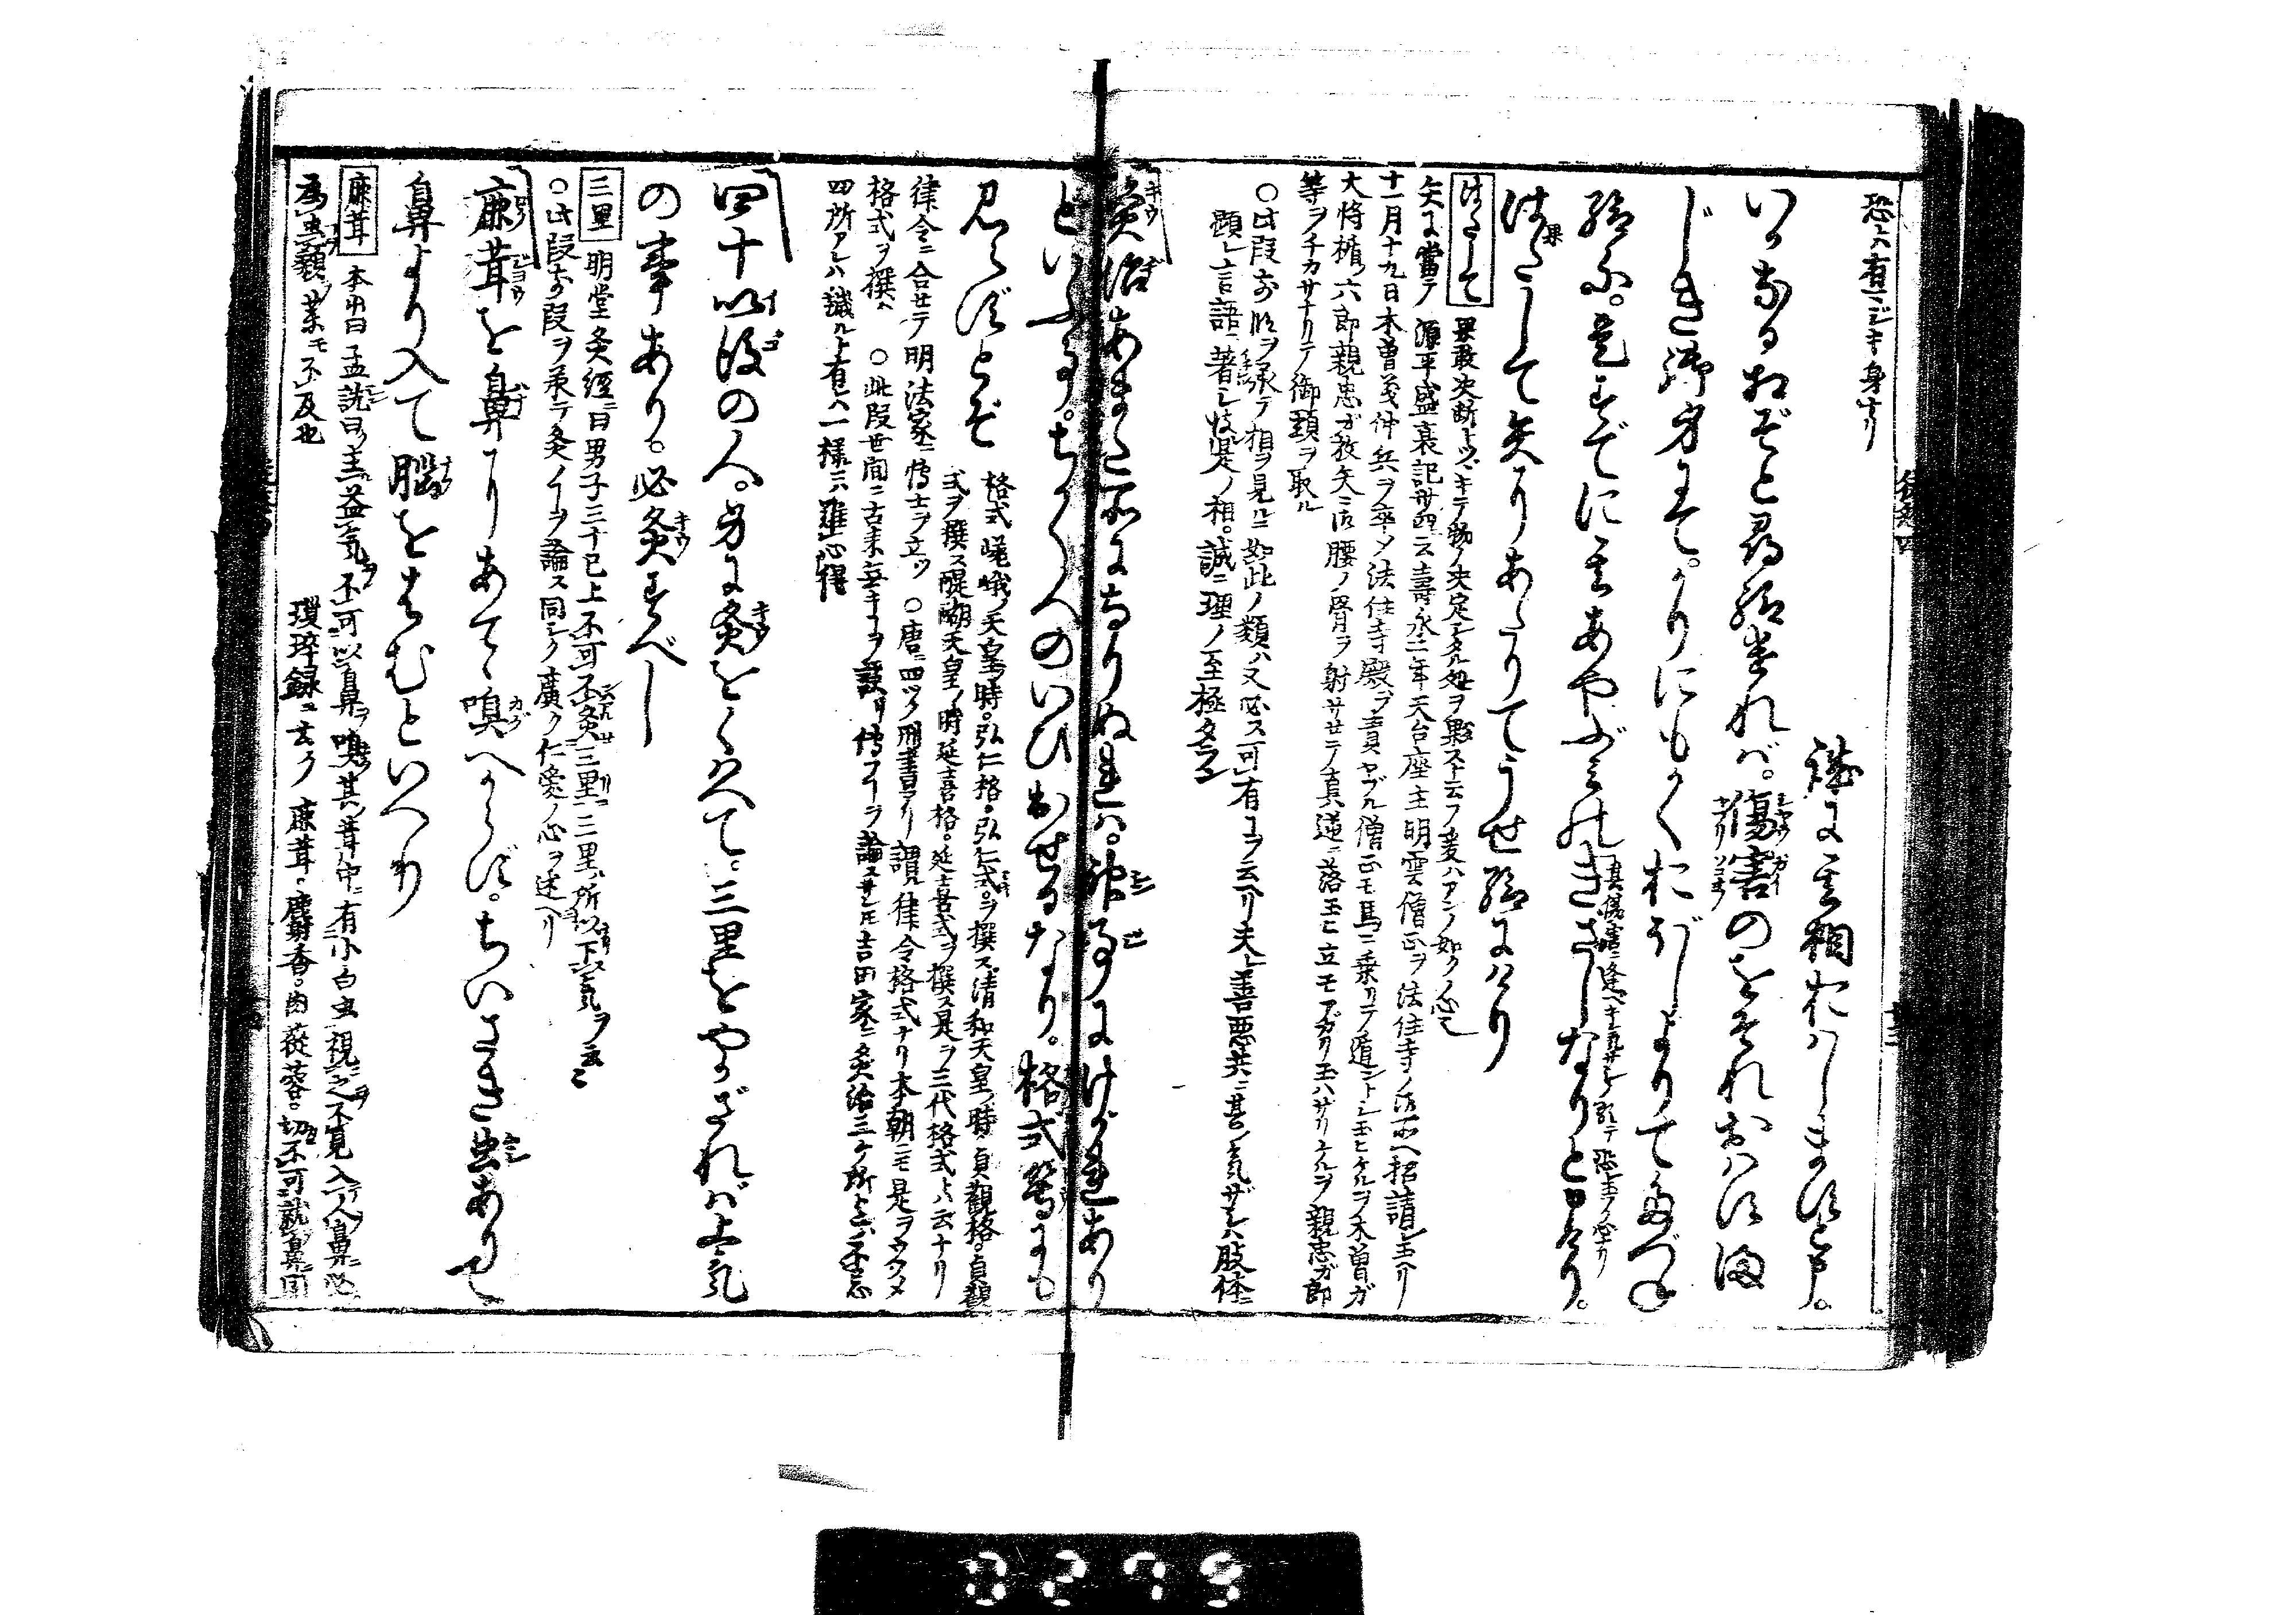 恐ハ有マジキ身ナリ
誠に其相おはします と申。
いかなる相ぞと尋給ければ。傷害のをそれおはしま
じき御身にて。かりにもかくおぼしよりてたづね
給ふ。是すでに其あやぶみのきざしなりと申けり。
はたして矢にあたりてうせ給にけり
はたして 果敢決断トツヾキテ物ノ決定シタル処ヲ果スト云フ
矢に當テ 源平盛衰記卅四ニ云壽永二年天台座主明雲僧正ヲ法住寺ノ御所ヘ招請シ玉ヘリ
十一月十九日木曽義仲兵ヲ卒メ法住寺殿ヲ責ヤブル僧正モ馬ニ乗リテ遁ントシ玉ヒケルヲ木曽ガ
大将楯ノ六郎親忠ガ放矢ニ御腰ノ骨ヲ射サセテ真逆ニ落玉ヒ立モアガリ玉ハザリケルヲ親忠ガ郎
等ヲチカサナリテ御頸ヲ取ル
○此段前段ヲ承テ相ヲ見ルニ如此ノ類ハ又必ス可有コヲ云ヘリ夫レ善悪共ニ其氣ザシハ肢体ニ
顕レ言語ニ著シ 相。誠ニ理ノ至極タラン
灸治あまた所になりぬれば。神事にけがれあり
といふ事。ちかく人のいひ出せるなり。格式等にも
見えずとぞ
格式 嵯峨ノ天皇ノ時。弘仁格。弘仁式ヲ撰ス清和天皇ノ時。貞観格。貞観
式ヲ撰ス醍醐天皇ノ時延喜格。延喜式ヲ撰ス是ヲ三代格式トハ云ナリ
律令ニ合セテ明法家ニ博士ヲ立ツ ○唐ニ四ツノ刑書アリ謂ル律令格式ナリ本朝ニモ是ヲウツメ
格式ヲ撰ヘ ○此段世間ニ古来無キ ヲ誤リ傳フ ヲ論スサレモ吉田家ニ灸治三ケ所トハ不忌
四所アレハ 有ヘ一様ニハ難心得
四十以後の人。身に灸をくはへて。三里をやかざれば上氣
の事あり。必灸すべし
三里 明堂灸經ニ曰男子三十已上不可不灸三里三里ハ所以下氣ヲ云
○此段前段ヲ承テ灸ノ ヲ論ス同シク廣ク仁愛ノ心ヲ述ヘリ
鹿茸を鼻にあてゝ嗅べからず。ちいさき虫ありて
鼻より入て腦をはむといへり
鹿茸 本草曰孟詵曰主益氣不可以鼻ヲ嗅其茸中ニ有小白虫視之不見入人鼻ニ必
為虫顙藥モ不及也 瑣碎録ニ云ク 鹿茸。麝香。肉蓯蓉。切不可就鼻聞